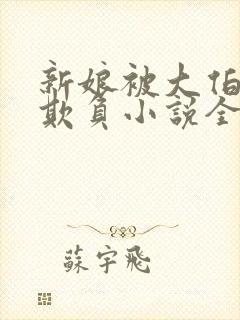 新娘被大伯
欺負小説全
蘇宇飛